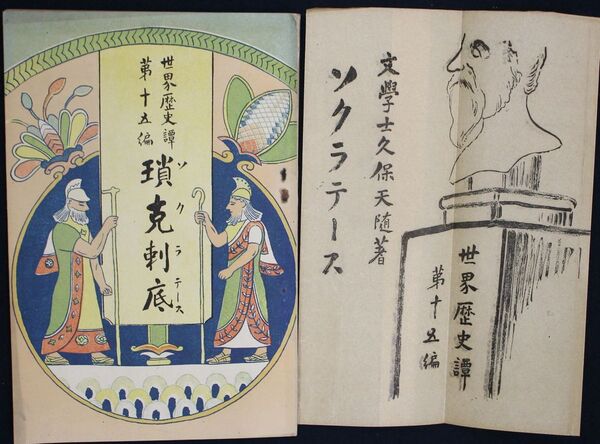 世界歷史譚
第十五編
瑣克刺底
ソクラテース
文學士久保天随著
ソクラテース
世界歴史譚
第十五編